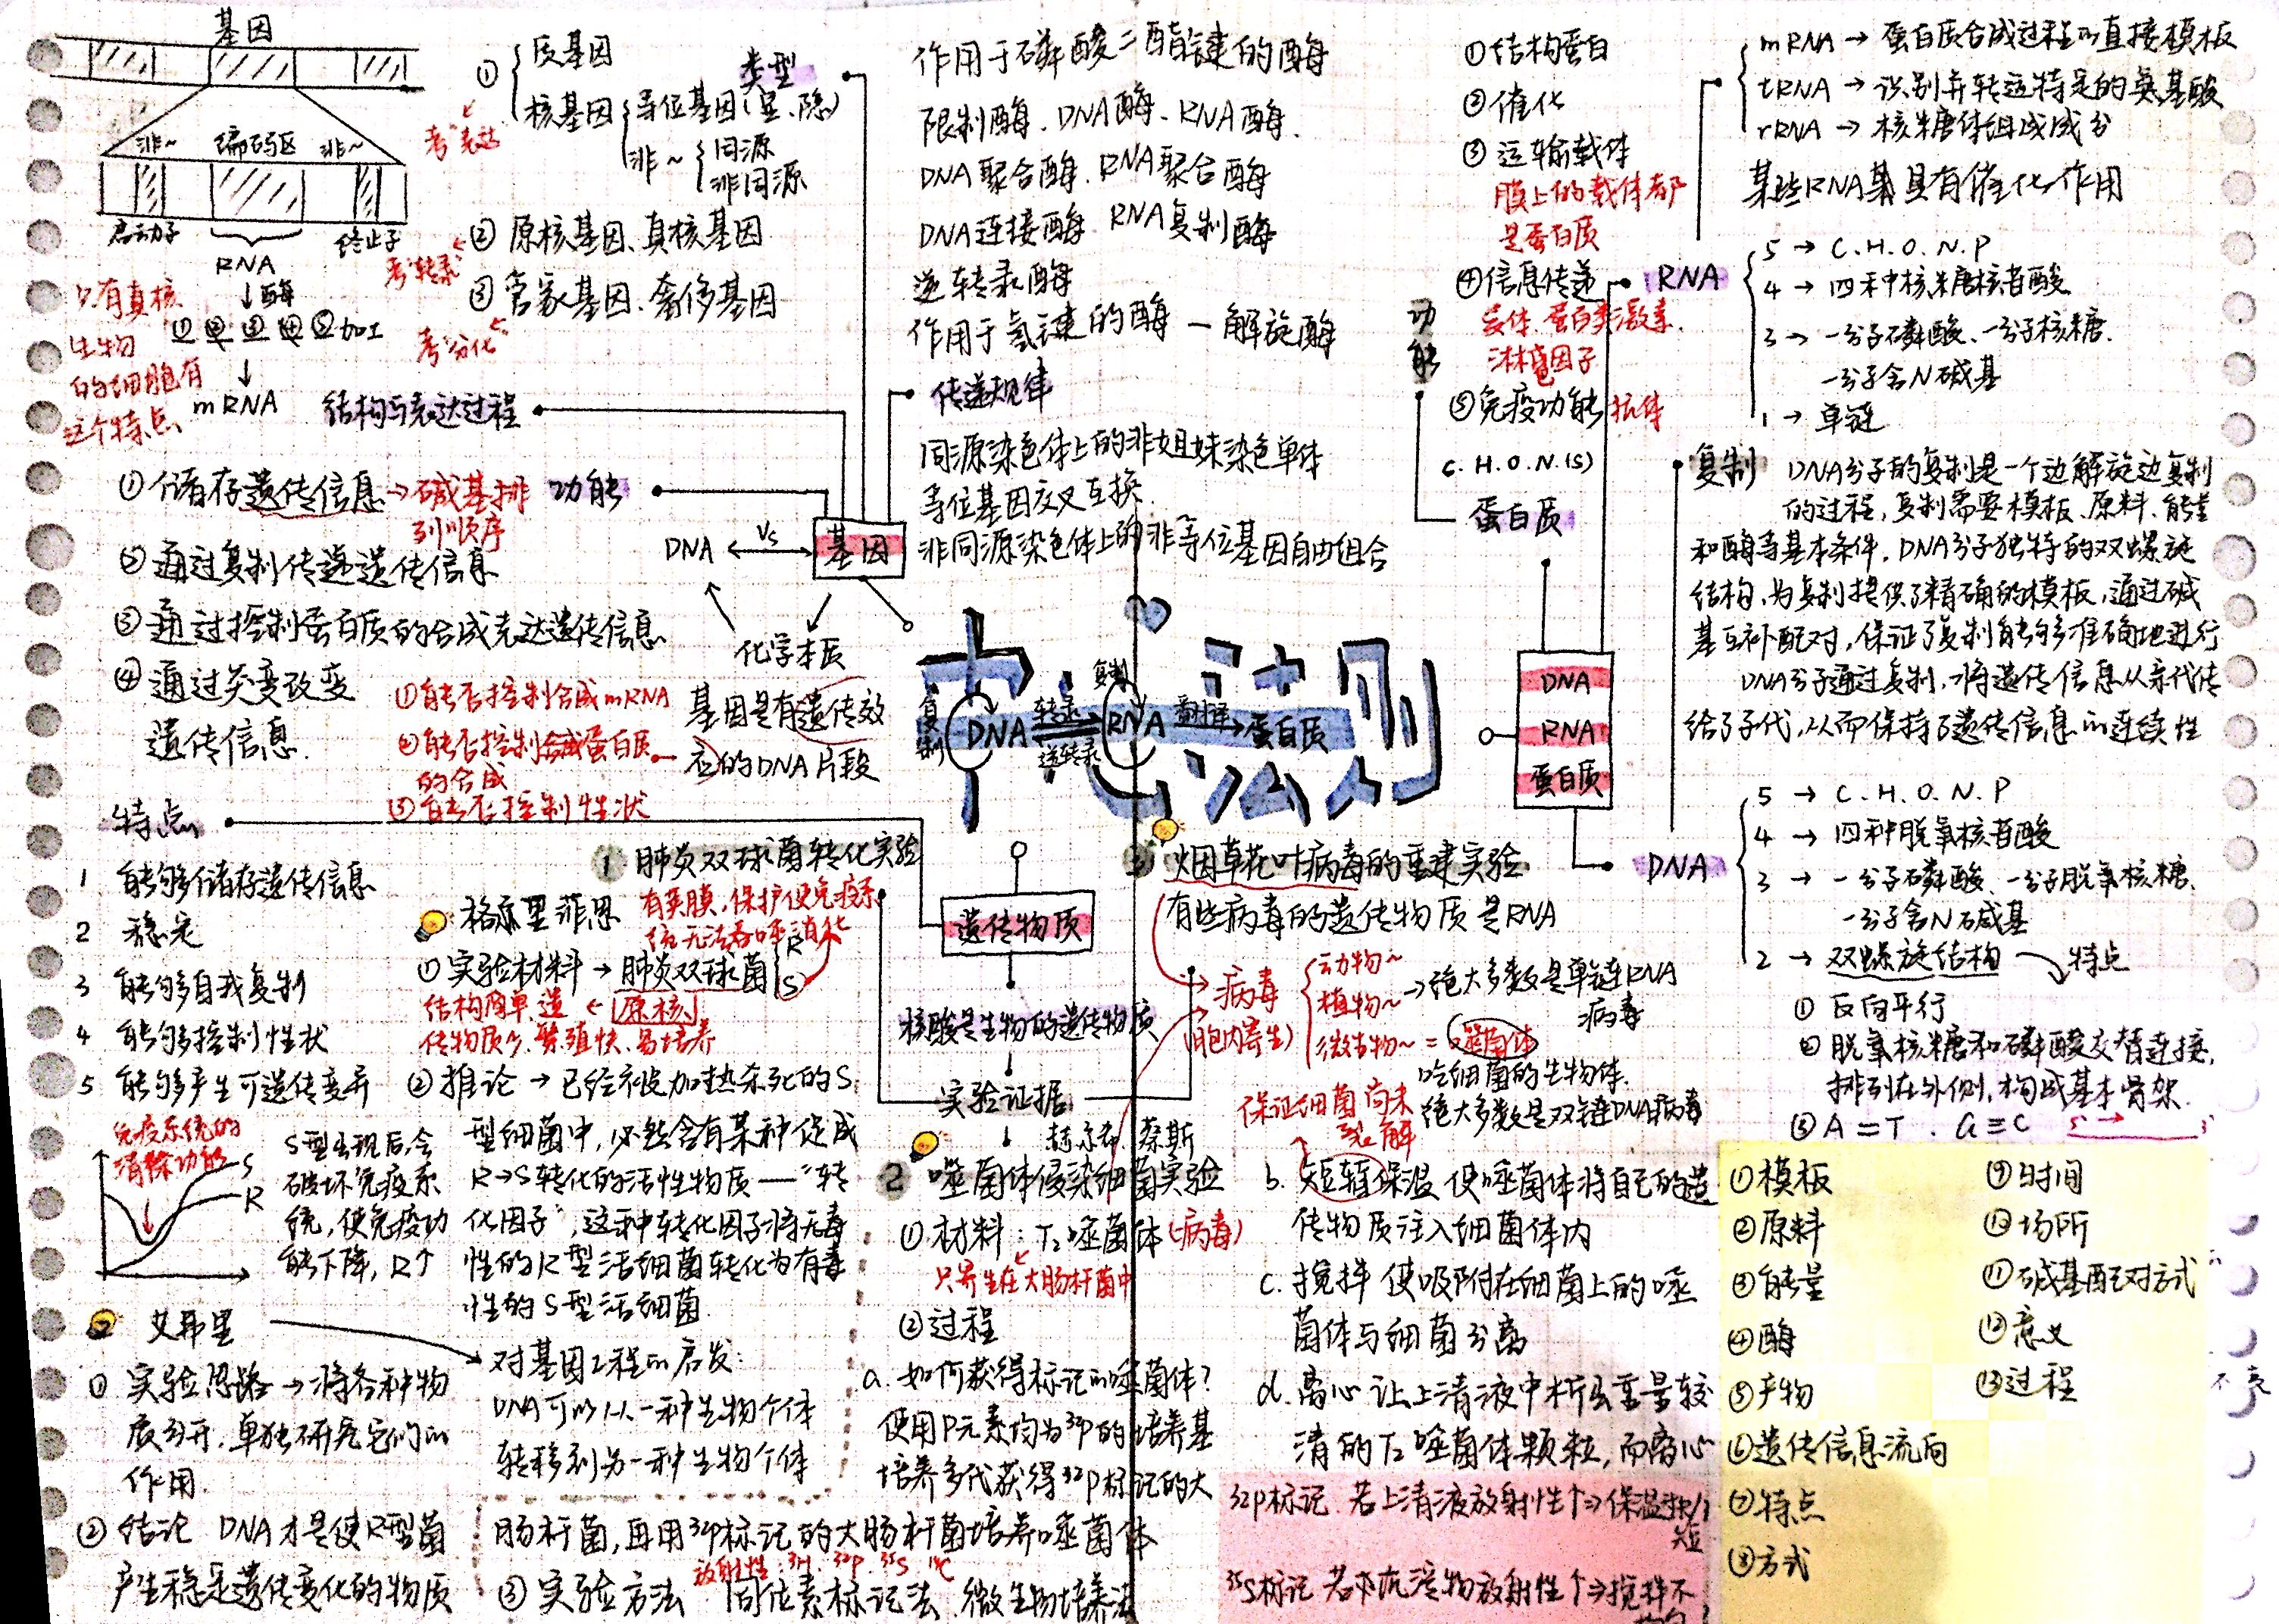 基因
非~ 编码区 非~
启动子 终止子
RNA
↓酶
①②③④⑤加工
↓
mRNA
只有真核
生物
的细胞有
这个特点
结构与表达过程
类型
①质基因
核基因 等位基因(显、隐)
非~ 同源
非同源
考"表达
②原核基因、真核基因
考"转录
③管家基因、奢侈基因
考"分化
作用于磷酸二酯键的酶
限制酶、DNA酶、RNA酶、
DNA聚合酶、RNA聚合酶
DNA连接酶 RNA复制酶
逆转录酶
作用于氢键的酶 — 解旋酶
传递规律
同源染色体上的非姐妹染色单体
等位基因交叉互换
非同源染色体上的非等位基因自由组合
功能
①储存遗传信息→碱基排
列顺序
②通过复制传递遗传信息
③通过控制蛋白质的合成表达遗传信息
④通过突变改变
遗传信息
DNA ←vs→ 基因
化学本质
基因是有遗传效
应的DNA片段
①能否控制合成mRNA
②能否控制合成蛋白质
的合成
③能否控制性状
中心法则
复制 DNA 转录 逆转录 复制 RNA 翻译→蛋白质
①结构蛋白
②催化
③运输载体
膜上的载体都
是蛋白质
④信息传递
受体、蛋白类激素、
淋巴因子
⑤免疫功能 抗体
功能
C.H.O.N.(S)
蛋白质
mRNA→蛋白质合成过程的直接模板
tRNA→识别并转运特定的氨基酸
rRNA→核糖体组成成分
某些RNA具有催化作用
RNA
5→C.H.O.N.P
4→四种核糖核苷酸
3→一分子磷酸、一分子核糖、
一分子含N碱基
1→单链
复制 DNA分子的复制是一个边解旋边复制
的过程,复制需要模板、原料、能量
和酶等基本条件,DNA分子独特的双螺旋
结构,为复制提供了精确的模板,通过碱
基互补配对,保证了复制能够准确地进行
DNA分子通过复制,将遗传信息从亲代传
给了子代,从而保持了遗传信息的连续性
DNA
RNA
蛋白质
DNA
5→C.H.O.N.P
4→四种脱氧核苷酸
3→一分子磷酸、一分子脱氧核糖、
一分子含N碱基
2→双螺旋结构 特点
①反向平行
②脱氧核糖和磷酸交替连接,
排列在外侧,构成基本骨架
③A=T、G≡C
特点
1 能够储存遗传信息
2 稳定
3 能够自我复制
4 能够控制性状
5 能够产生可遗传变异
遗传物质
核酸是生物的遗传物质
实验证据
1 肺炎双球菌转化实验
格里菲思
有荚膜,保护使免疫系
统无法吞噬消化
①实验材料→肺炎双球菌 R S
结构简单、遗 ←原核
传物质少、繁殖快、易培养
②推论→已经被加热杀死的S
型细菌中,必然含有某种促成
R→S转化的活性物质—"转
化因子",这种转化因子将无毒
性的R型活细菌转化为有毒
性的S型活细菌
免疫系统的
清除功能
S
R
S型出现后,会
破坏免疫系
统,使免疫功
能下降,R↑
2 艾弗里
①实验思路→将各种物
质分开,单独研究它们的
作用
②结论 DNA才是使R型菌
产生稳定遗传变化的物质
对基因工程的启发:
DNA可以从一种生物个体
转移到另一种生物个体
赫尔希 蔡斯
2 噬菌体侵染细菌实验
①材料:T₂噬菌体(病毒)
只寄生在大肠杆菌中
②过程
a. 如何获得标记的噬菌体?
使用P元素均为³²P的培养基
培养多代获得³²P标记的大
肠杆菌,再用³²P标记的大肠杆菌培养噬菌体
放射性:³H ³²P ³⁵S ¹⁴C
③实验方法 同位素标记法、微生物培养法
3 烟草花叶病毒的重建实验
有些病毒的遗传物质是RNA
病毒
(胞内寄生)
动物~
植物~→绝大多数是单链RNA
病毒
微生物~=噬菌体
吃细菌的生物体
绝大多数是双链DNA病毒
保证细菌尚未
裂解
b. 短暂保温 使噬菌体将自己的遗
传物质注入细菌体内
c. 搅拌 使吸附在细菌上的噬
菌体与细菌分离
d. 离心 让上清液中析出重量较
清的T₂噬菌体颗粒,而离心
³²P标记 若上清液放射性↑⇒保温
短
³⁵S标记 若沉淀物放射性↑⇒搅拌不
①模板
②原料
③能量
④酶
⑤产物
⑥遗传信息流向
⑦特点
⑧方式
⑨时间
⑩场所
⑪碱基配对方式
⑫意义
⑬过程